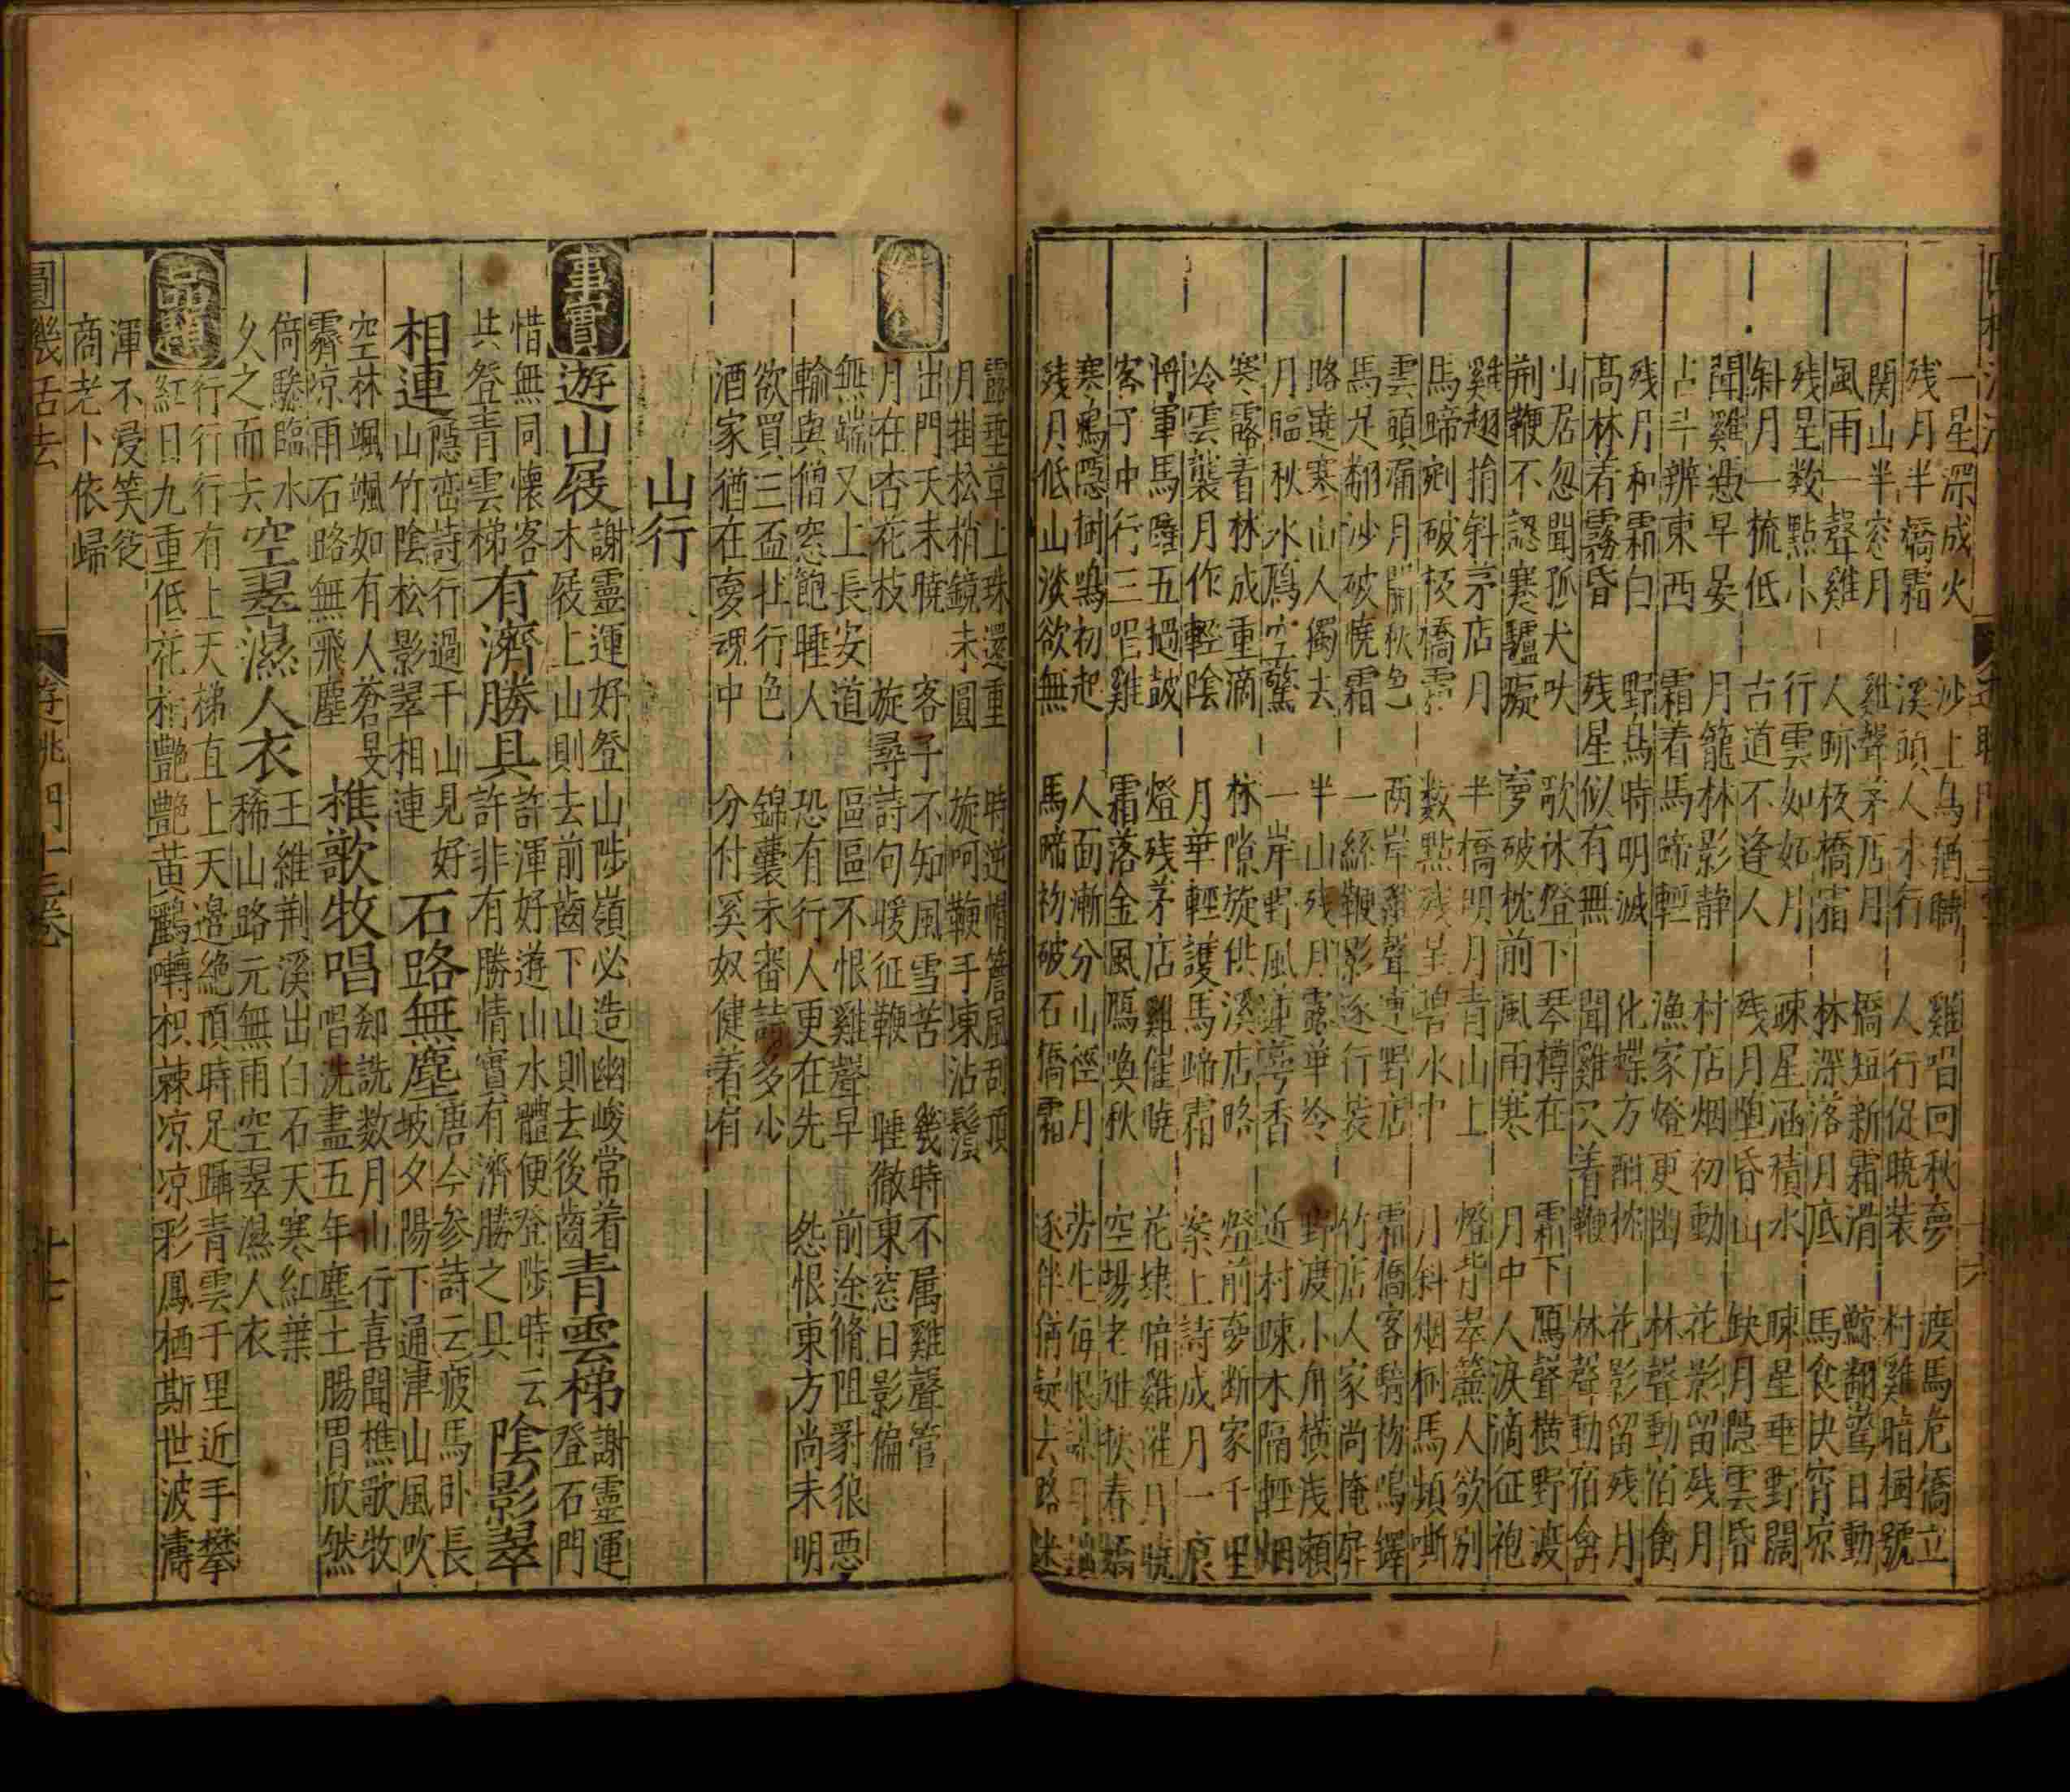 一星深成火 沙上烏猶 雞唱回秋夢 渡馬危橋立
残月半橋霜 溪頭人未行 人行促曉装 村雞暗樹號
関山半窓月 雞聲茅店月 橋短新霜滑 鯨翻驚日動
風雨一聲雞 人跡板橋霜 林深落月底 馬食怏宵凉
残星数點小 行雲如妬月 踈星涵積水 踈星垂野闊
斜月一梳低 古道不逢人 残月墮昏山 缺月隠雲昏
聞雞愚早晏 月籠林影静 村店烟初動 花影留残月
占斗辨東西 霜着馬蹄輕 漁家燈更幽 林聲動宿禽
残月和霜白 野烏時明滅 化蝶方酣枕 花影留残月
髙林着霧昏 残星似有無 聞雞又着鞭 林聲動宿禽
山居忽聞孤犬吠 歌休燈下琴樽在 霜下鴈聲横野渡
荆鞭不認寒驢癡 夢破枕前風雨寒 月中人淚滴征袍
雞翅揹斜茅店月 半橋明月青山上 燈背萃簾人欲别
馬蹄剜破板橋霜 数點残星碧水中 月斜烟樹馬頻嘶
雲頭漏月開秋色 两岸蛩聲連野店 霜橋客騎物鳴鐸
馬足翻沙破曉霜 一絲鞭影逐行装 竹店人家尚掩扉
路遶寒山人獨去 半山残月露華冷 野渡小舟横浅瀬
月臨秋水鴈空驚 一岸野風蓮萼香 近村踈木隔輕烟
寒露着林成重滴 林隙旋供溪店略 燈前夢断家千里
冷雲襲月作輕陰 月華輕護馬蹄霜 案上詩成月一痕
将軍馬壁五撾鼓 燈残茅店雞催曉 花埭暗雞催月曉
客子中行三唱雞 霜落金風鴈喚秋 空塲老
寒鴉隠樹鳴初起 人面漸分山徑月 労生每恨
残月低山淡欲無 馬蹄初破石橋霜 逐伴偏疑去路迷
露垂草上珠還重 時逆帽簷風刮頂
月掛松梢鏡未圓 旋呵鞭手凍沾鬚
出門天未曉 客子不知風雪苦 幾時不属雞聲管
月在杏花枝 旋尋詩句暖征鞭 睡徹東窓日影偏
無端又上長安道 區區不恨雞聲早 前途脩阻豺狼悪
輸與僧窓飽睡人 恐有行人更在先 怨恨東方尚未明
欲買三盃壮行色 錦囊未審詩多少
酒家猶在夢魂中 分付奚奴健着肩
山行
事實 遊山屐 謝靈運好登山陟嶺必造幽峻常着
木屐上山則去前齒下山則去後齒 青雲梯 謝靈運
登石門
惜無同懷客
共登青雲梯 有濟勝具 許渾好好遊山水體便登陟時云
許非有勝情實有濟勝之具 陰影翠
相連 隠巒詩行過千山見好
山竹陰松影翠相連 石路無塵 唐今参詩云疲馬卧長
坡夕陽下通津山風吹
空林颯颯如有人蒼旻
霽凉雨石路無飛塵 樵歌牧唱 郄詵数月山行喜聞樵歌牧
唱洗盡五年塵土腸胃欣然
倚驂臨水
久之而去 空翠濕人衣 王維荆溪出白石天寒紅葉
稀山路元無雨空翠濕人衣
品題 行行行有上天梯直上天邉絶頂時足躡青雲于里近手攀
紅日九重低花桃艶艶黄鸝囀枳棘凉凉彩鳳栖斯世波濤
渾不浸笑從
商老卜依歸
圓機活法 遊眺門 十三卷 十七